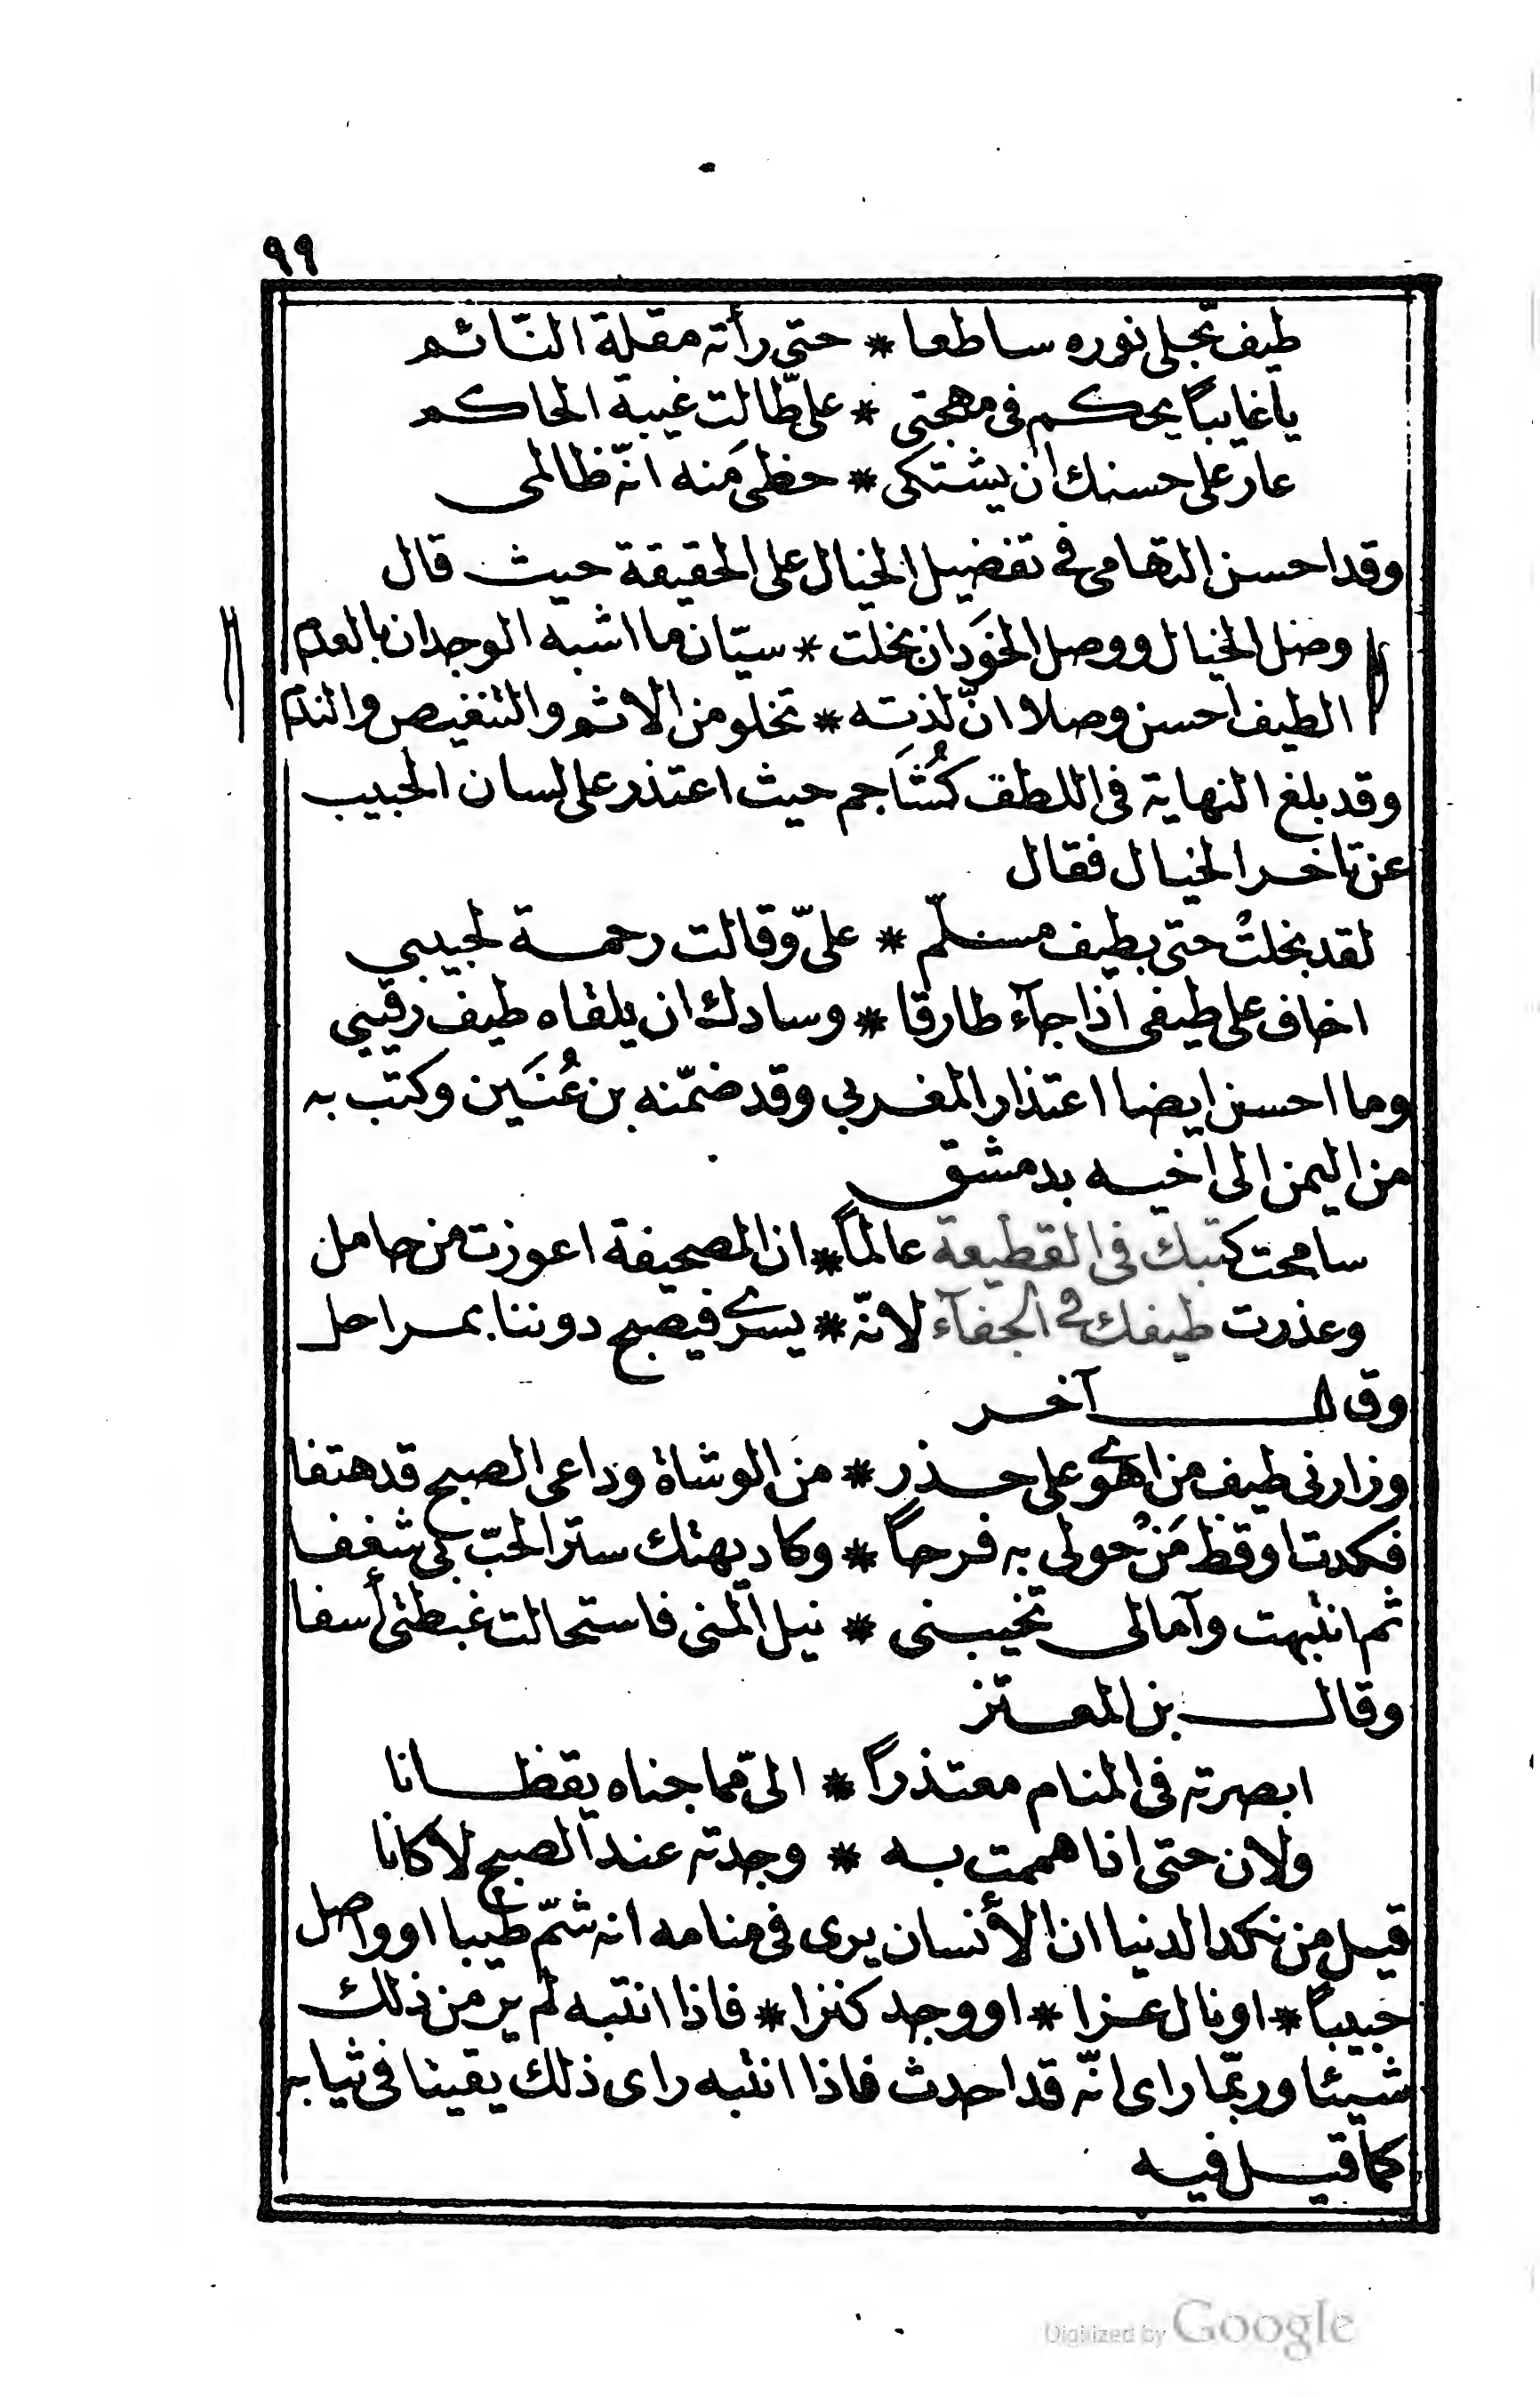 ٩٩
طيف تجلى نوره ساطعا * حتى رأته مقلة النّائم
يا غايباً يحكم في مهجتى * علىّ طالت غيبة الحاكم
عار على حسنك ان يشتكى * حظى مَنه انّه ظالمى
وقد احسن التهامى في تفضيل الخيال على الحقيقة حيث قال
وصل الخيال ووصل الخَود ان بخلت * سيّان ما اشبه الوجدان بالعدم
الطيف احسن وصلا انّ لذته * تخلو من الاثم والتنغيص والندم
وقد بلغ النهاية فى اللطف كُشَاجم حيث اعتذر على لسان الحبيب
عن تاخر الخيال فقال
لقد بخلتْ حتى بطيف مسلّم * علىّ وقالت رحمة لحبيبي
اخاف على طيفى اذا جآء طارقا * وسادك ان يلقاه طيف رقيبي
وما احسن ايضا اعتذار المغربي وقد ضمّنه بن عُنَين وكتب به
من اليمن الى اخيه بدمشق
سامحت كتبك فى القطيعة عالماً * ان الصحيفة اعوزت من حامل
وعذرت طيفك في الجفآء لانّه * يسرى فيصبح دوننا بمراحل
وقال آخر
وزارنى طيف من اهوى على حذر * من الوشاة وداعى الصبح قد هتفا
فكدت اوقظ مَنْ حولى به فرحاً * وكاد يهتك ستر الحبّ بى شغفا
ثم انتبهت وآمالى تخيبنى * نيل المنى فاستحالت غبطتى أسفا
وقال بن المعتز
ابصرته فى المنام معتذراً * الىّ مما جناه يقظانا
ولان حتى اذا هممت به * وجدته عند الصبح لا كانا
قيل من نكد الدنيا ان الأنسان يرى فى منامه انه شمّ طيبا او واصل
حبيباً * او نال عزا * او وجد كنزا * فاذا انتبه لم ير من ذلك
شيئا وربّما راى انّه قد احدث فاذا انتبه راى ذلك يقينا فى ثيابه
كما قيل فيه
Digitized by Google